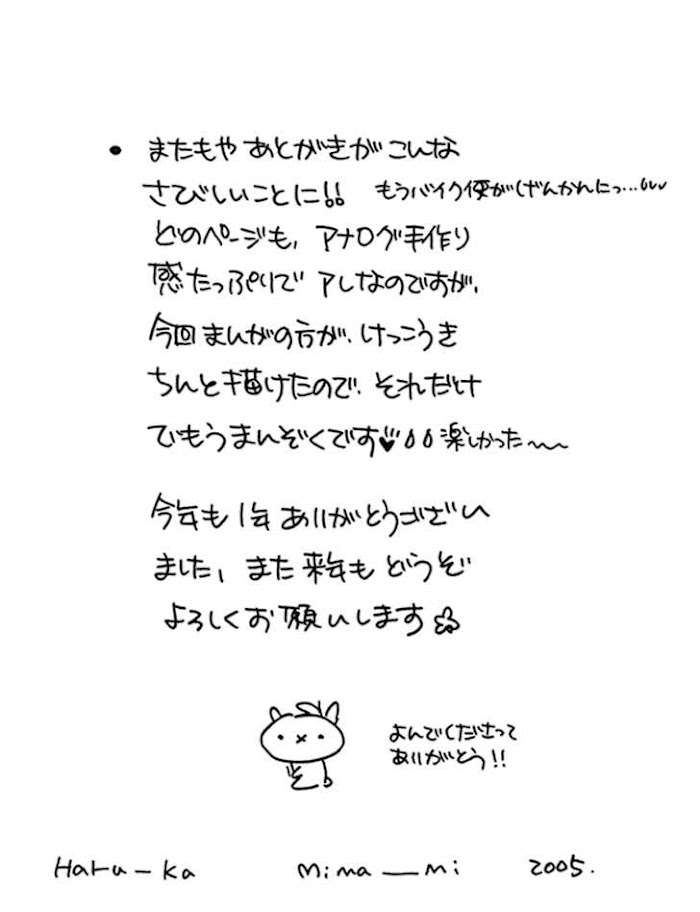 • またもや あとがきが こんな
さびしいことに!! もうバイク便がげんかんにっ…
どのページも、アナログ手作り
感たっぷりで アレなのですが、
今回まんがの方が、けっこうき
ちんと描けたので、それだけ
でもうまんぞくです♥ 楽しかった〜
今年も1年 ありがとうござい
ました、また来年も どうぞ
よろしくお願いします
よんでくださって
ありがとう!!
Haru-ka Mina—mi 2005.